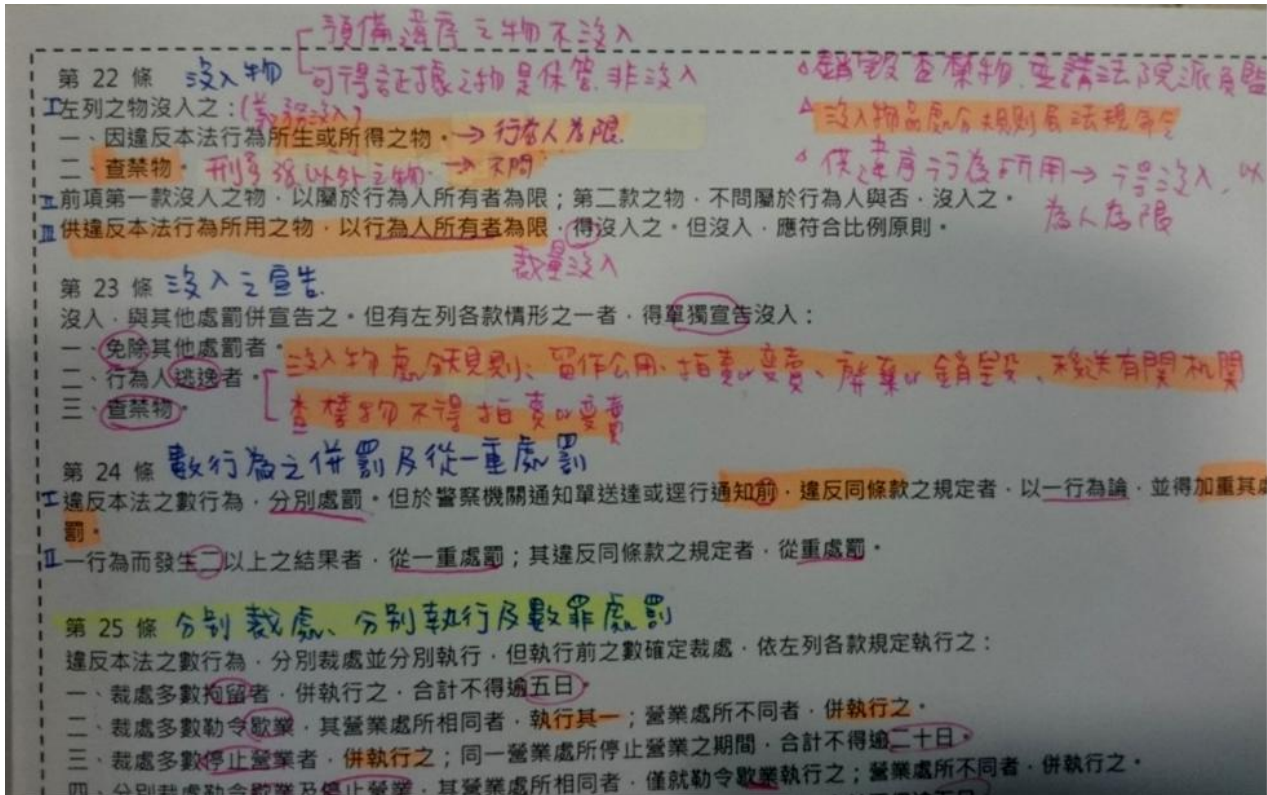 預備違序之物不沒入
第 22 條 沒入物 可得証據之物是保管.非沒入
△銷毀查禁物.應請法院派員監
I左列之物沒入之：(義務沒入)
△沒入物品處分規則屬法規命令
一、因違反本法行為所生或所得之物。→行為人為限.
二、查禁物。刑事以外之物.→不問
△供違序行為所用→得沒入,以
為人為限
II前項第一款沒入之物，以屬於行為人所有者為限；第二款之物，不問屬於行為人與否，沒入之。
III供違反本法行為所用之物，以行為人所有者為限，得沒入之。但沒入，應符合比例原則。
裁量沒入
第 23 條 沒入之宣告.
沒入，與其他處罰併宣告之。但有左列各款情形之一者，得單獨宣告沒入：
一、免除其他處罰者。
二、行為人逃逸者。沒入物處分規則、留作公用、拍賣or變賣、廢棄or銷毀、移送有關机關
三、查禁物。查禁物不得拍賣or變賣
第 24 條 數行為之併罰及從一重處罰
I違反本法之數行為，分別處罰。但於警察機關通知單送達或逕行通知前，違反同條款之規定者，以一行為論，並得加重其處
罰。
II一行為而發生二以上之結果者，從一重處罰；其違反同條款之規定者，從重處罰。
第 25 條 分別裁處、分別執行及數罪處罰
違反本法之數行為，分別裁處並分別執行，但執行前之數確定裁處，依左列各款規定執行之：
一、裁處多數拘留者，併執行之，合計不得逾五日。
二、裁處多數勒令歇業，其營業處所相同者，執行其一；營業處所不同者，併執行之。
三、裁處多數停止營業者，併執行之；同一營業處所停止營業之期間，合計不得逾二十日。
四、分別裁處勒令歇業及停止營業，其營業處所相同者，僅就勒令歇業執行之；營業處所不同者，併執行之。